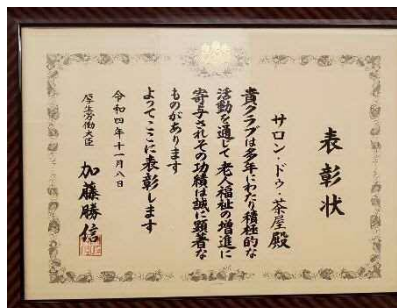 表彰状
サロン・ドゥ・茶屋殿
貴クラブは多年にわたり積極的な
活動を通じて老人福祉の増進に
寄与されその功績は誠に顕著な
ものがあります
よってここに表彰します
令和四年十一月八日
厚生労働大臣
加藤勝信